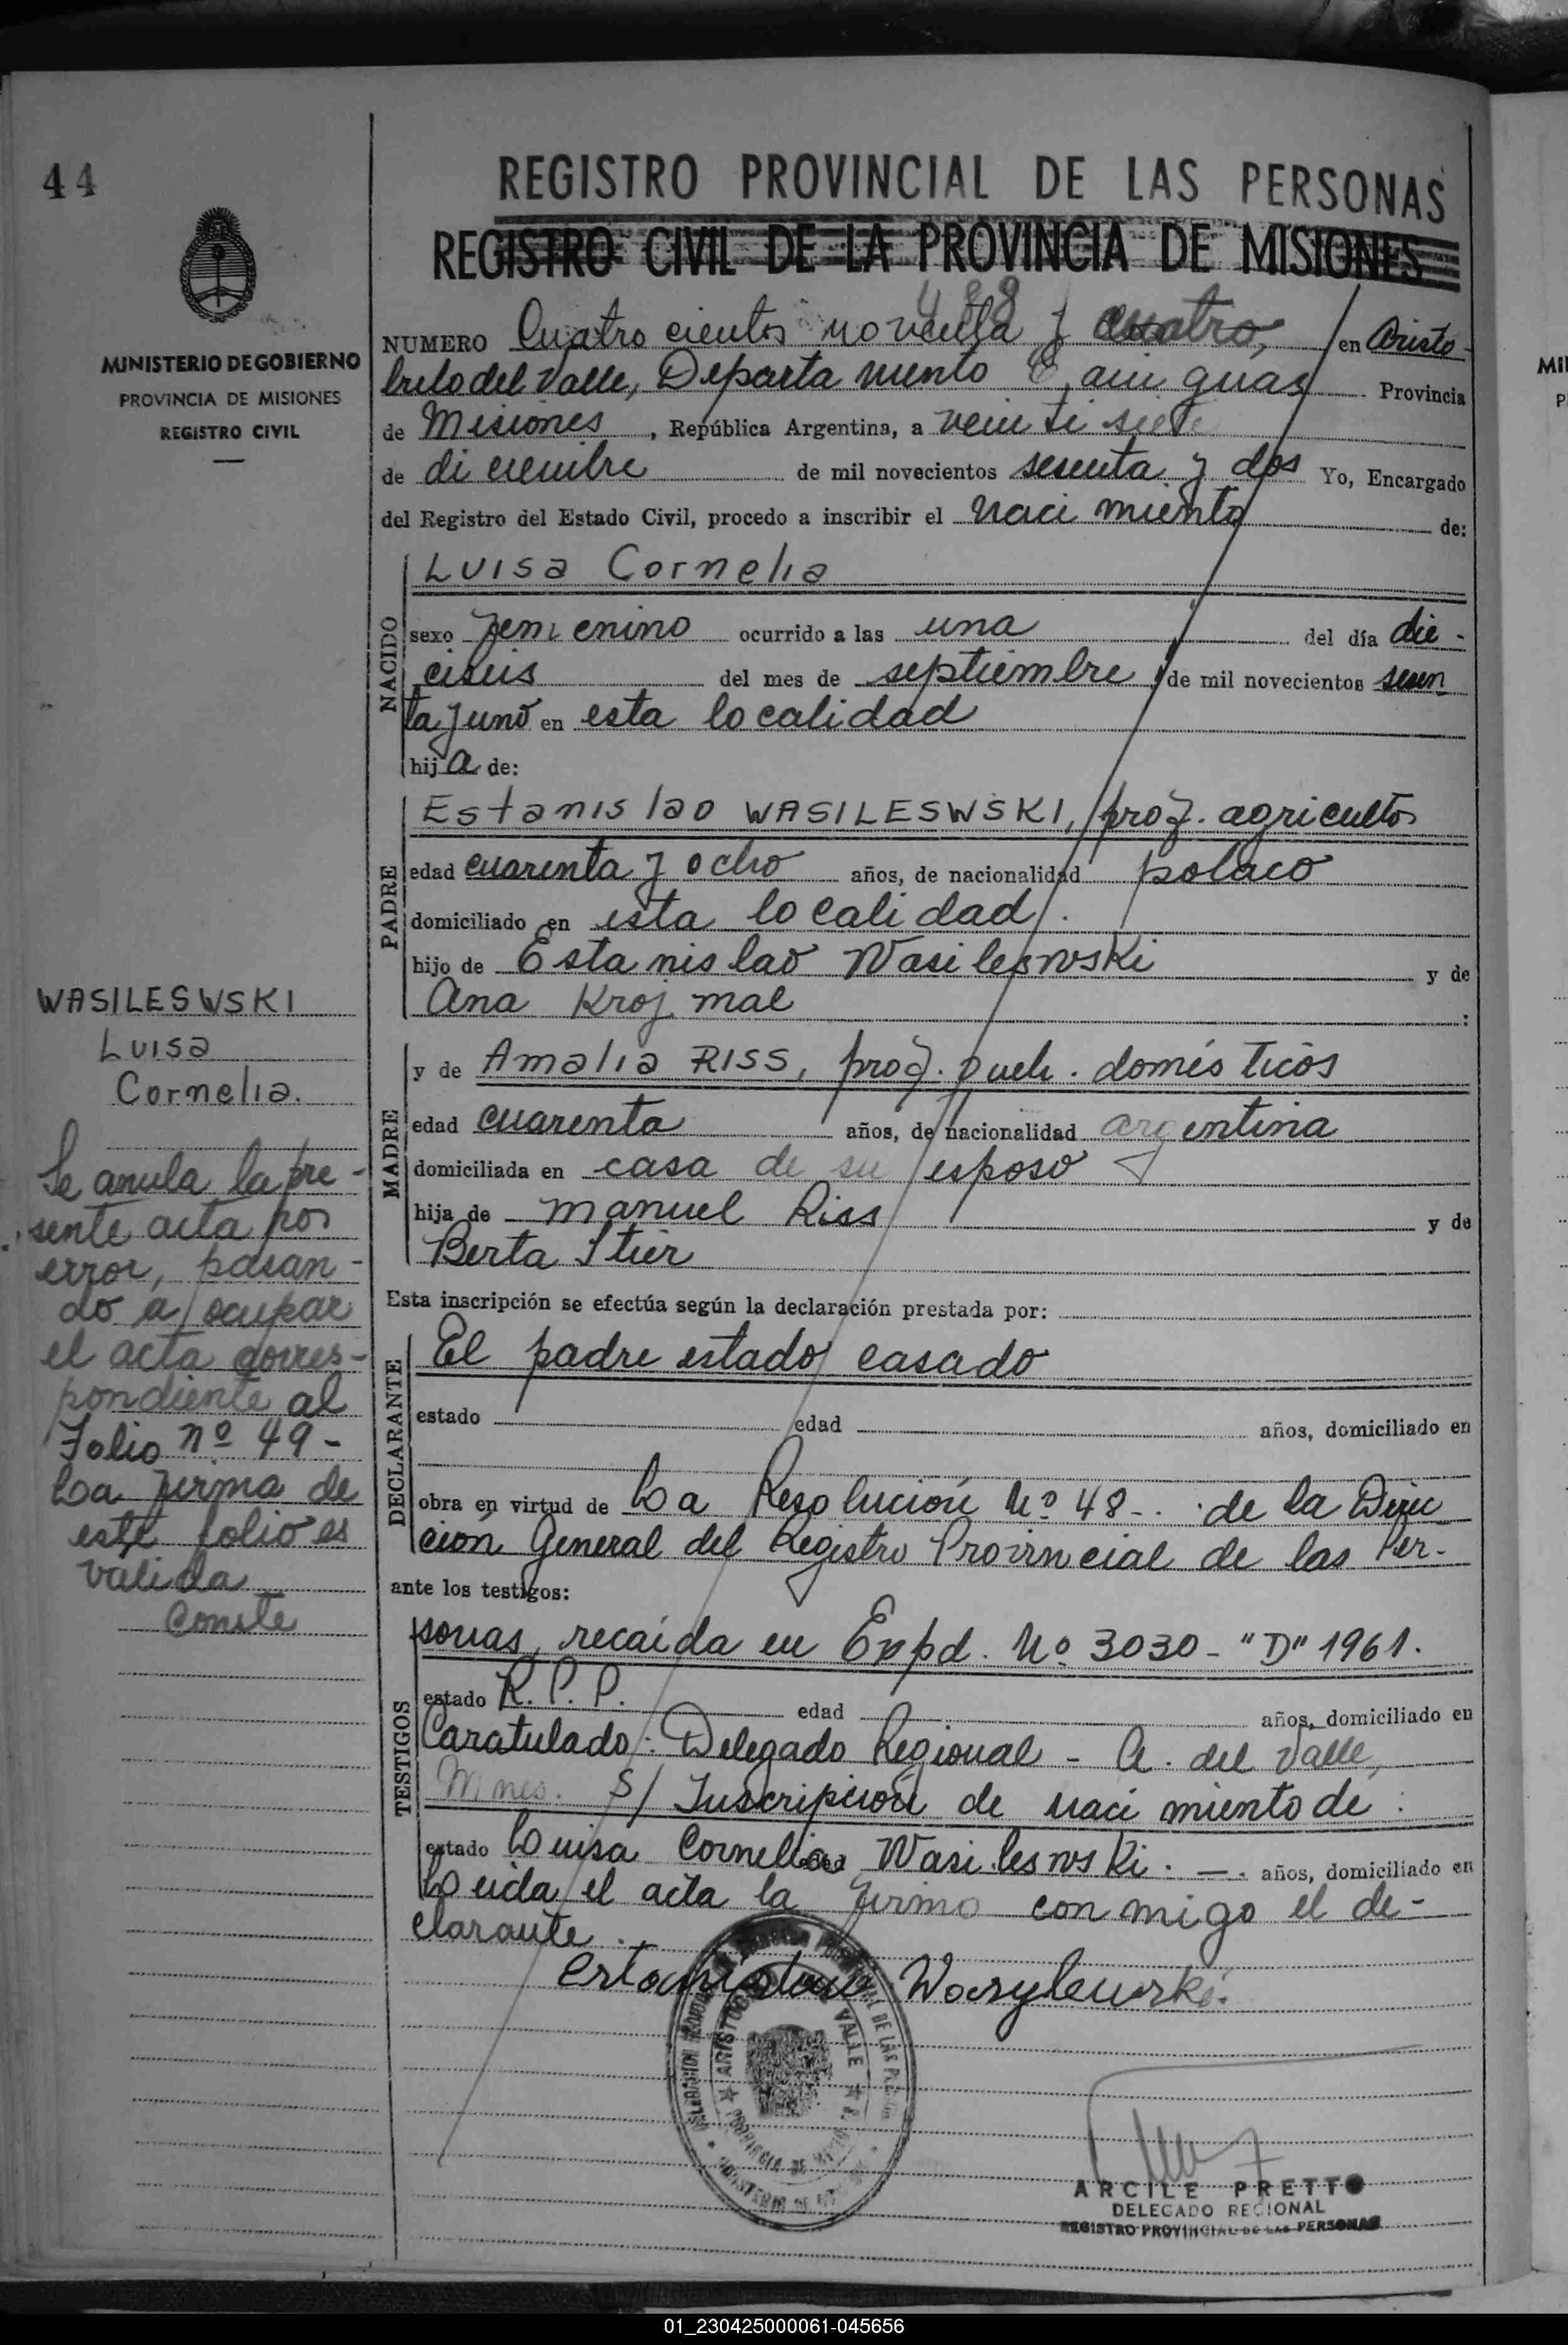 44
REGISTRO PROVINCIAL DE LAS PERSONAS
REGISTRO CIVIL DE LA PROVINCIA DE MISIONES
MINISTERIO DE GOBIERNO
PROVINCIA DE MISIONES
REGISTRO CIVIL
NUMERO Cuatro cientos noventa y cuatro, en Aristo-
bulo del Valle, Departamento Cainguas Provincia
de Misiones, República Argentina, a veintisiete
de diciembre de mil novecientos sesenta y dos Yo, Encargado
del Registro del Estado Civil, procedo a inscribir el nacimiento de:
NACIDO
Luisa Cornelia
sexo femenino ocurrido a las una del día die-
ciseis del mes de septiembre de mil novecientos sesen
ta y uno en esta localidad
hija de:
PADRE
Estanislao WASILESWSKI, prof. agricultor
edad cuarenta y ocho años, de nacionalidad polaco
domiciliado en esta localidad.
hijo de Estanislao Wasileswski y de
Ana Kroj mal :
MADRE
y de Amalia RISS, prof. queh. domésticos
edad cuarenta años, de nacionalidad argentina
domiciliada en casa de su esposo
hija de Manuel Riss y de
Berta Stier
Esta inscripción se efectúa según la declaración prestada por:
DECLARANTE
El padre estado casado
estado edad años, domiciliado en
obra en virtud de La Resolución Nº 48-. de la Direc
ción General del Registro Provincial de las Per-
ante los testigos:
TESTIGOS
sonas, recaída en Expd. Nº 3030-"D" 1961.
estado R.P.P. edad años, domiciliado en
Caratulado: Delegado Regional - A. del Valle,
Mnes. S/ Inscripción de nacimiento de:
estado Luisa Cornelia Wasileswski. —. años, domiciliado en
Leida el acta la firma conmigo el de-
clarante.
WASILESWSKI
Luisa
Cornelia.
Se anula la pre-
sente acta por
error, pasan-
do a ocupar
el acta corres-
pondiente al
Folio nº 49-
La firma de
este folio es
válida
Conste
Estanislau Wasylewski.
ARISTOBULO DEL VALLE
ARCILE PRETTO
DELEGADO REGIONAL
REGISTRO PROVINCIAL DE LAS PERSONAS
01_230425000061-045656